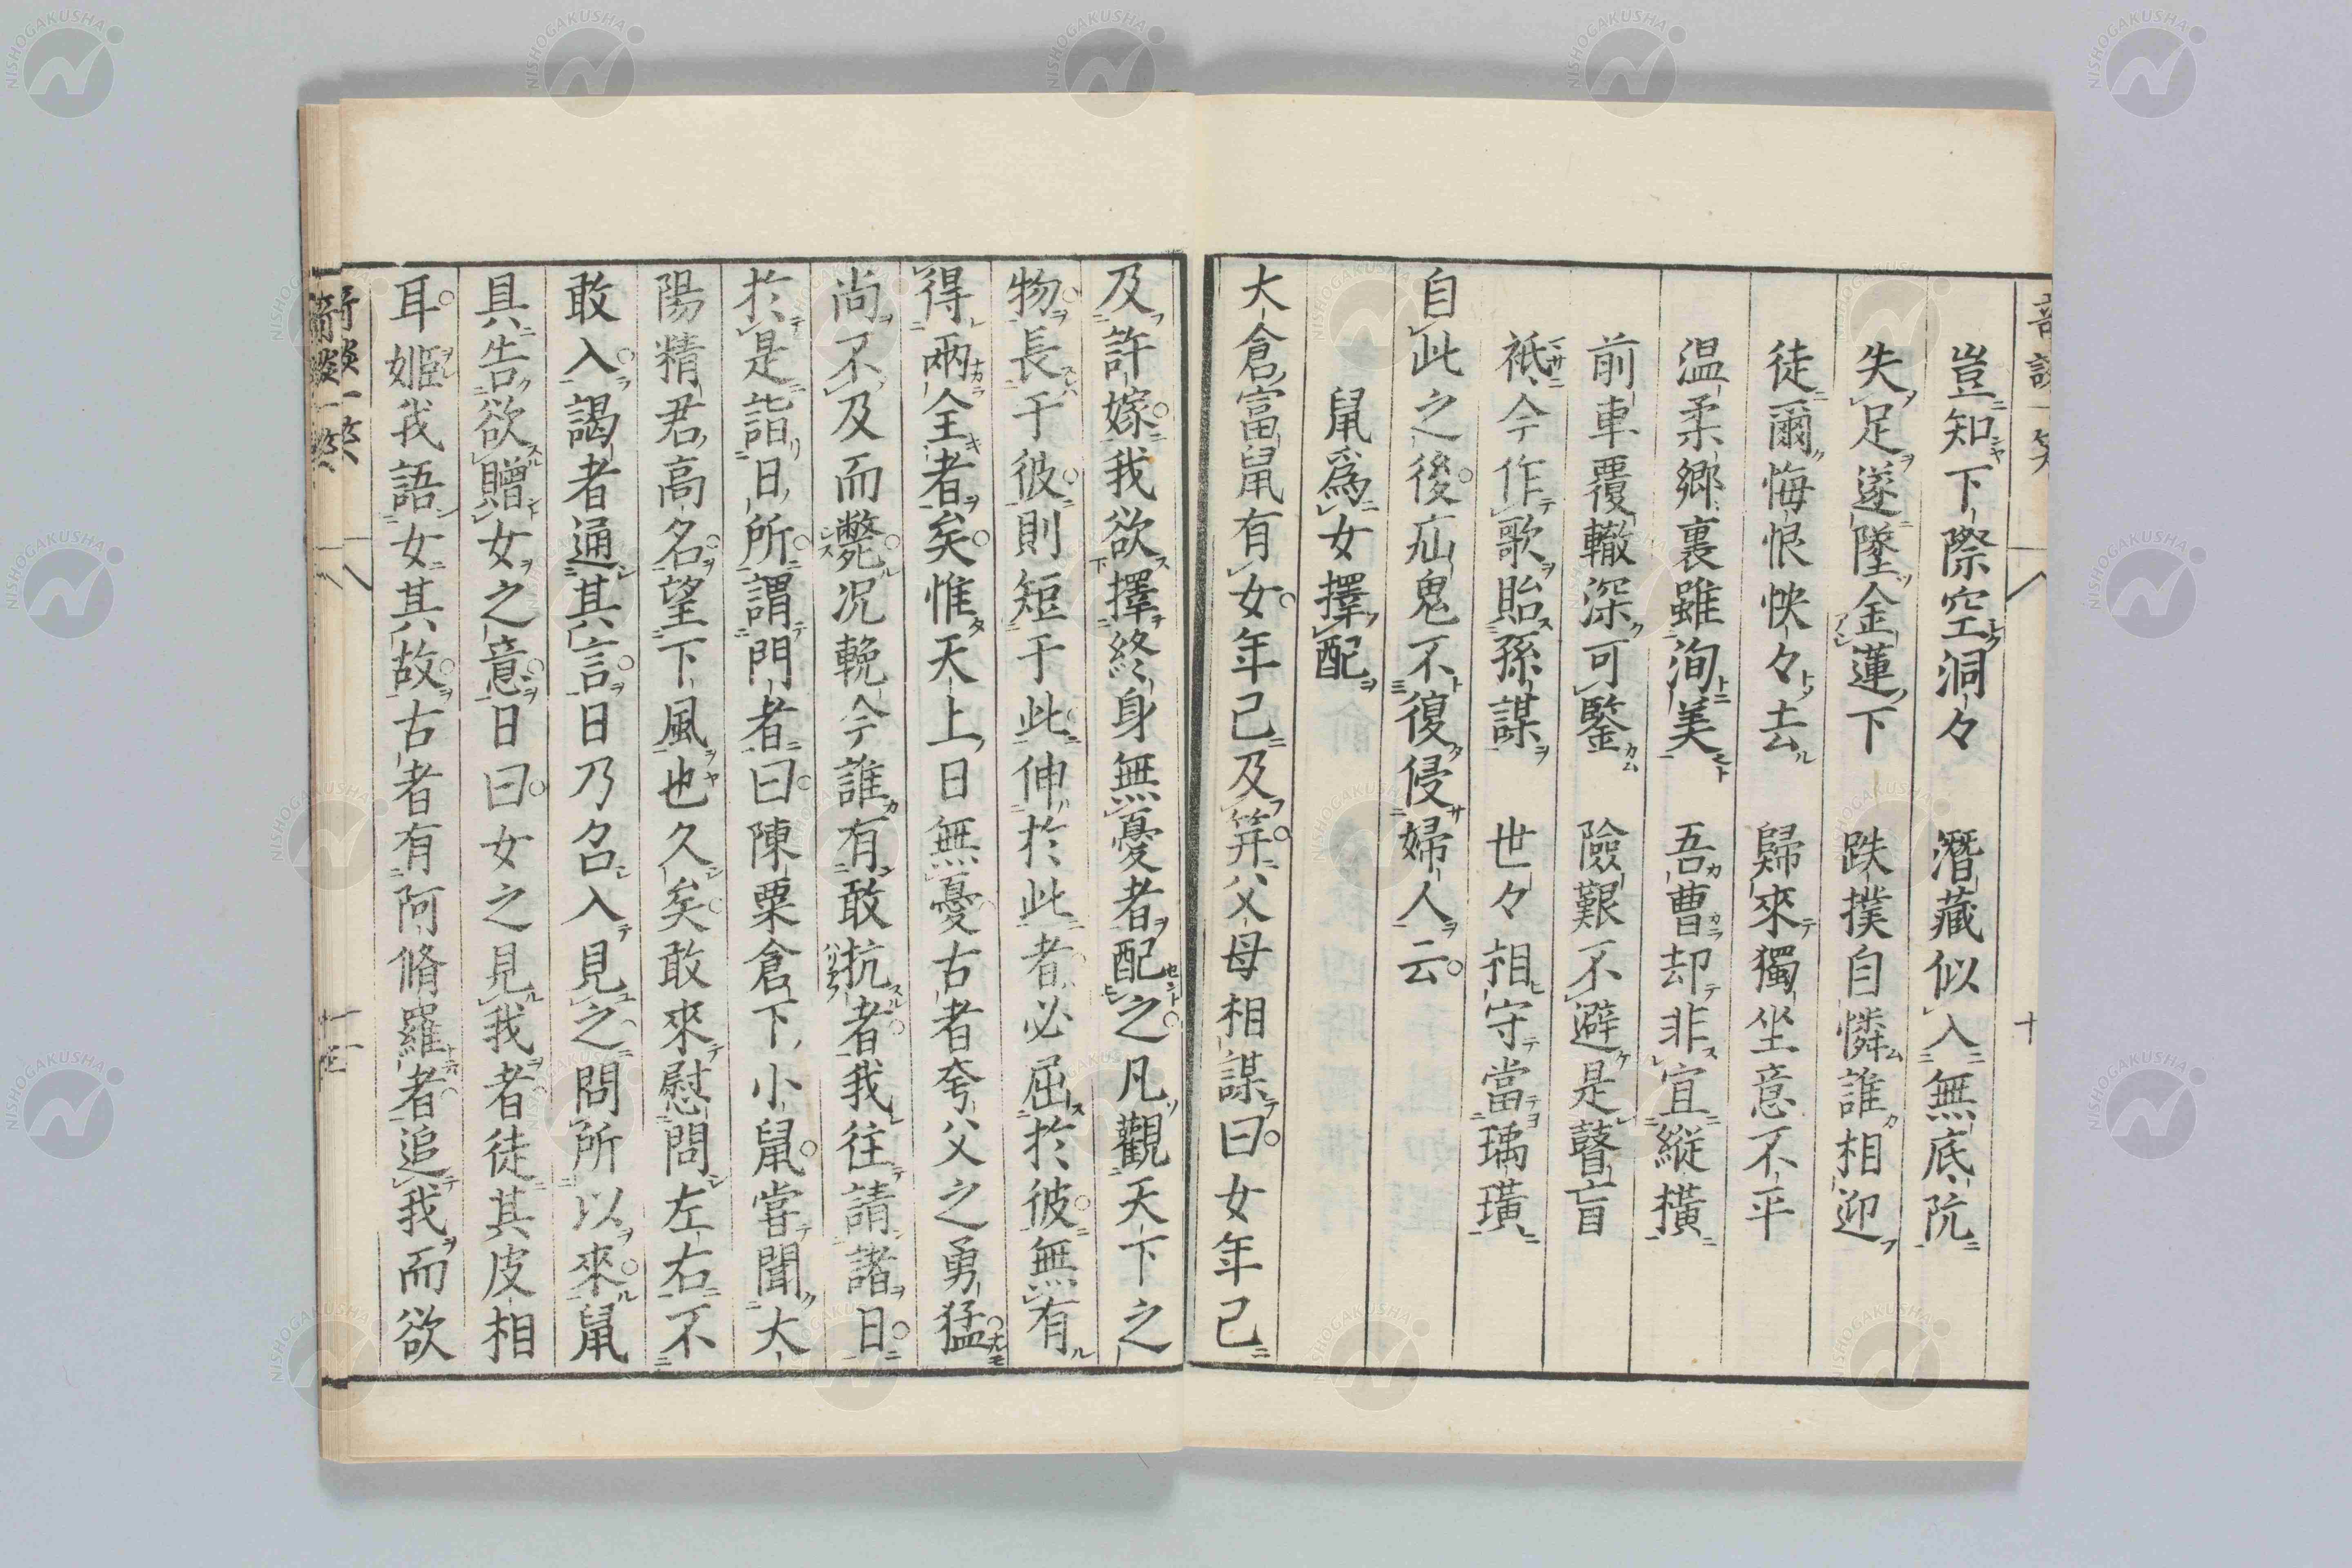 豈知下際空洞々　潛藏似入無底阬
失足遂墜金蓮下　跌撲自憐誰相迎
徒爾悔恨怏々去　歸來獨坐意不平
温柔鄉裏雖洵美　吾曹却非宜縱橫
前車覆轍深可鑒　險艱不避是瞽盲
祇今作歌貽孫謀　世々相守當瑀璜
自此之後疝鬼不復侵婦人云
鼠爲女擇配
大倉富鼠有女年已及笄父母相謀曰女年已
及許嫁我欲擇終身無憂者配之凡觀天下之
物長于彼則短于此伸於此者必屈於彼無有
得兩全者矣惟天上日無憂古者夸父之勇猛
尚不及而斃況輓今誰有敢抗者我往請諸日
於是詣日所謂門者曰陳粟倉下小鼠嘗聞大
陽精君高名望下風也久矣敢來慰問左右不
敢入謁者通其言日乃召入見之問所以來鼠
具告欲贈女之意日曰女之見我者徒其皮相
耳姬我語女其故古者有阿脩羅者追我而欲